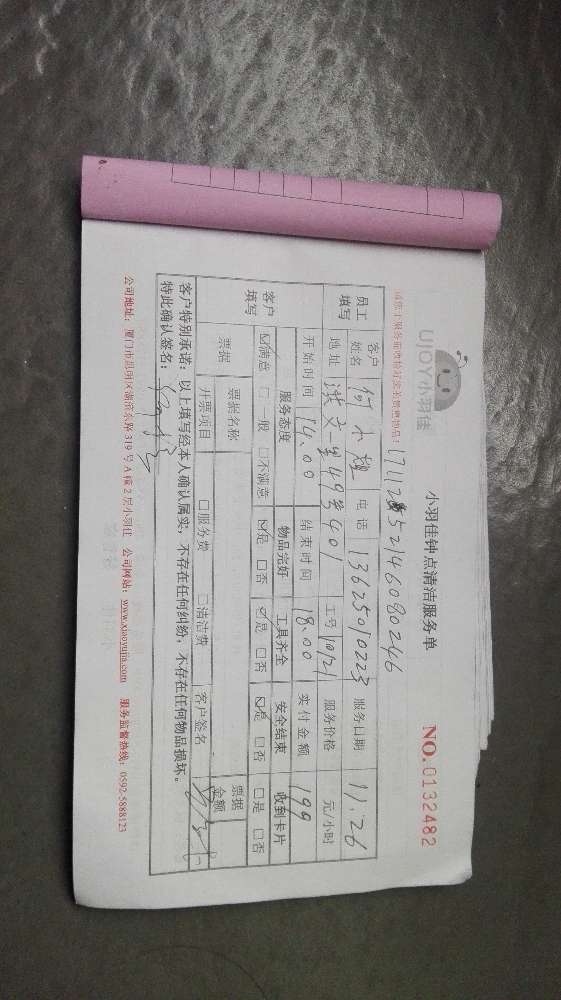 UJOY小羽佳
小羽佳钟点清洁服务单
NO.0132482
员工填写 客户姓名 何小 电话 13625010223 服务日期 11.26
地址 洪文一里49号401 工号 10121 服务价格 元/小时
开始时间 14.00 结束时间 18.00 实付金额 199
客户填写 服务态度 物品完好 工具齐全 安全结束 收到卡片
☑满意 □一般 □不满意 ☑是 □否 ☑是 □否 ☑是 □否 □是 □否
票据 票据名称 票据金额
开票项目 □服务费 □清洁费 客户签名
客户特别承诺：以上填写经本人确认属实，不存在任何纠纷，不存在任何物品损坏。
特此确认签名：
公司地址：厦门市思明区湖滨东路319号A幢2层小羽佳 公司网站：www.xiaoyujia.com 服务监督热线：0592-5888123